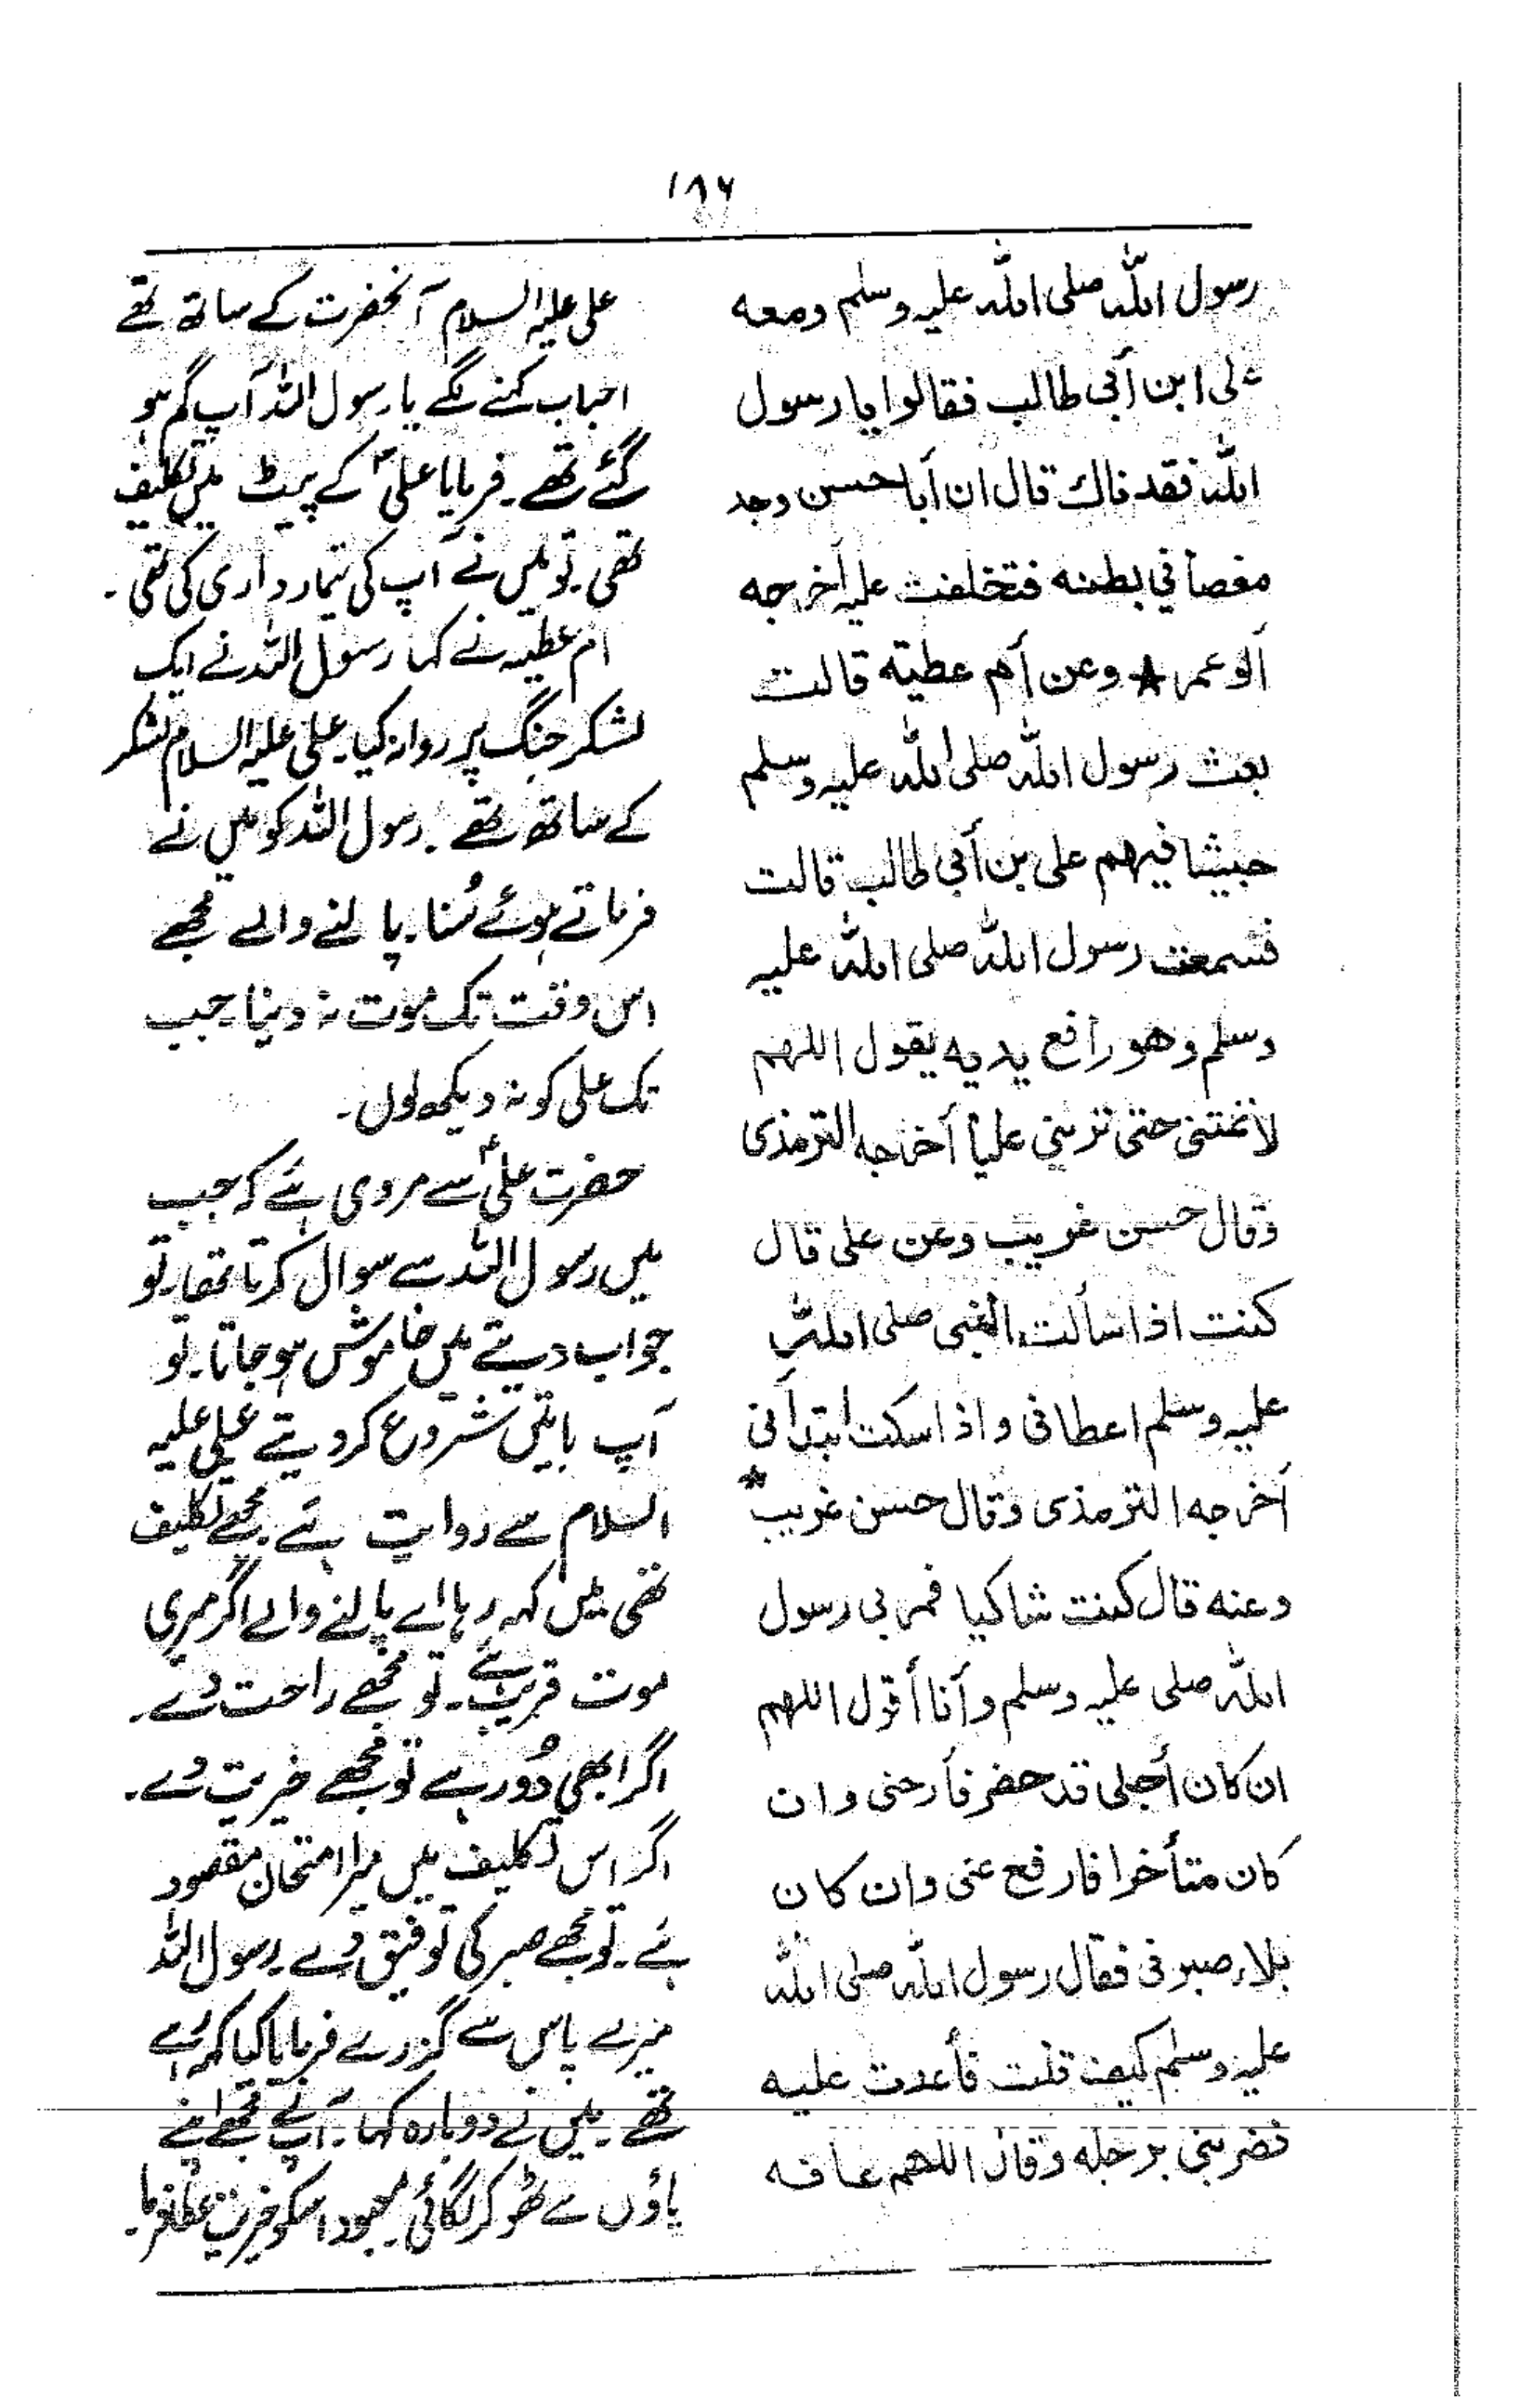 ۱۸۶
رسول الله صلى الله عليه وسلم ومعه
على ابن أبى طالب فقالوا يا رسول
الله فقد ناك قال ان أبا حسن وجد
مغصا في بطنه فتخلفت عليه أخرجه
أبو عمر ★ وعن أم عطية قالت
بعث رسول الله صلى الله عليه وسلم
جيشا فيهم على بن أبي طالب قالت
فسمعت رسول الله صلى الله عليه
وسلم وهو رافع يديه يقول اللهم
لا تمتنى حتى تريني عليا أخرجه الترمذى
وقال حسن غريب وعن على قال
كنت اذا سألت النبى صلى الله
عليه وسلم اعطانى واذا سكت ابتدأنى
أخرجه الترمذى وقال حسن غريب *
وعنه قال كنت شاكيا فمر بى رسول
الله صلى عليه وسلم وأنا أقول اللهم
ان كان أجلى قد حضر فأرحنى وان
كان متأخرا فارفع عنى وان كان
بلاء صبرنى فقال رسول الله صلى الله
عليه وسلم كيف قلت فأعدت عليه
فضربنى برجله وقال اللهم عافه
علی علیہ السلام آنحضرت کے ساتھ تھے
احباب کہنے لگے یا رسول اللہ آپ گم ہو
گئے تھے۔ فرمایا علیؑ کے پیٹ میں تکلیف
تھی۔ تو میں نے آپ کی تیمار داری کی تھی۔
ام عطیہ نے کہا رسول اللہ نے ایک
لشکر جنگ پر روانہ کیا۔ علی علیہ السلام لشکر
کے ساتھ تھے۔ رسول اللہ کو میں نے
فرماتے ہوئے سُنا۔ پالنے والے مجھے
اس وقت تک موت نہ دینا۔ جب
تک علی کو نہ دیکھ لوں۔
حضرت علیؑ سے مروی ہے کہ جب
میں رسول اللہ سے سوال کرتا تھا۔ تو
جواب دیتے میں خاموش ہو جاتا۔ تو
آپ باتیں شروع کر دیتے علی علیہ
السلام سے روایت ہے۔ مجھے تکلیف
تھی میں کہہ رہا اے پالنے والے اگر میری
موت قریب ہے۔ تو مجھے راحت دے۔
اگر ابھی دُور ہے تو مجھے خیریت دے۔
اگر اس تکلیف میں میرا امتحان مقصود
ہے۔ تو مجھے صبر کی توفیق دے۔ رسول اللہ
میرے پاس سے گزرے فرمایا کیا کہہ رہے
تھے۔ میں نے دوبارہ کہا۔ آپ نے مجھے اپنے
پاؤں سے ٹھوکر لگائی۔ معبود اسکو خیریت عطا فرما۔